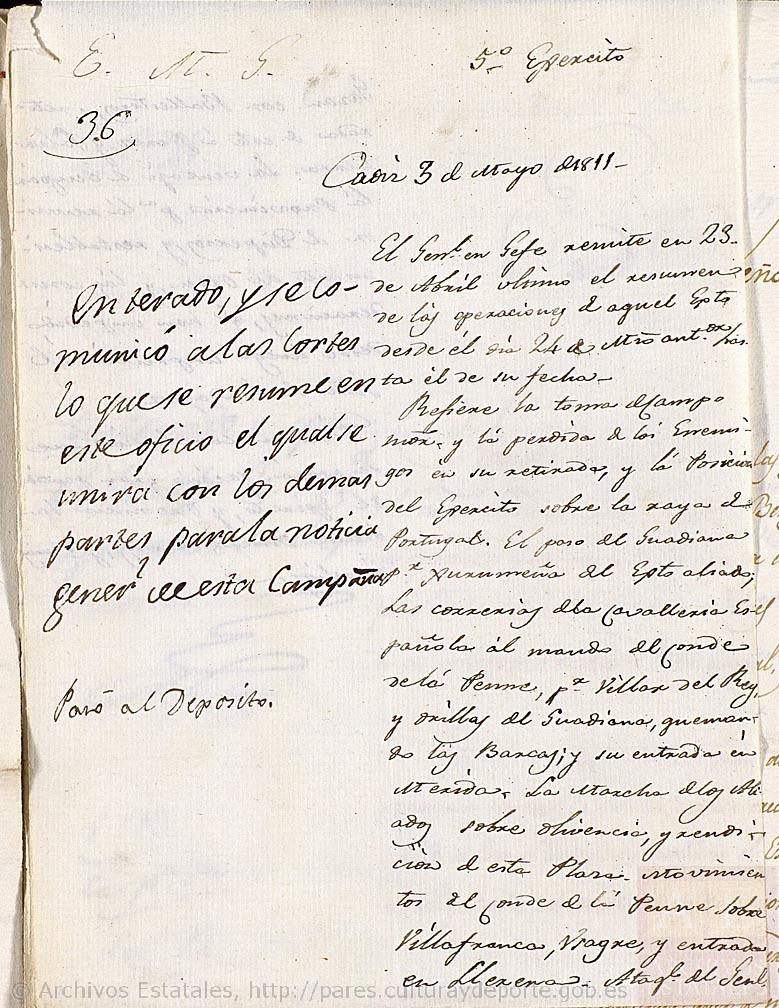 E. M. G.
5.º Exercito
36
Cadiz 3 de Mayo de 1811-
Enterado, y se co-
municó a las Cortes
lo que se resume en
este oficio el qual se
unira con los demas
partes para la noticia
gener.l de esta Campaña
Pasó al Deposito.
El Gen.l en Gefe remite en 23
de Abril ultimo el resumen
de las operaciones de aquel Exto
desde el dia 24 de Mzo ant.or has
ta el de su fecha-
Refiere la toma de Campo
mor. y la perdida de los Enemi-
gos en su retirada, y la Posicion
del Exercito sobre la raya de
Portugal. El paso del Guadiana
p.r Xurumeña del Exto aliado;
Las correrias de la Cavalleria Es-
pañola al mando del Conde
de la Penne, p.r Villar del Rey,
y orillas del Guadiana, queman-
do las Barcas; y su entrada en
Merida. La Marcha de los Ali-
ados sobre Olivencia, y rendi-
cion de esta Plaza. Movimien
tos del Conde de la Penne sobre
Villafranca, Usagre, y entrada
en Llerena. Ataq.e del Genl
© Archivos Estatales, http://pares.culturaydeporte.gob.es